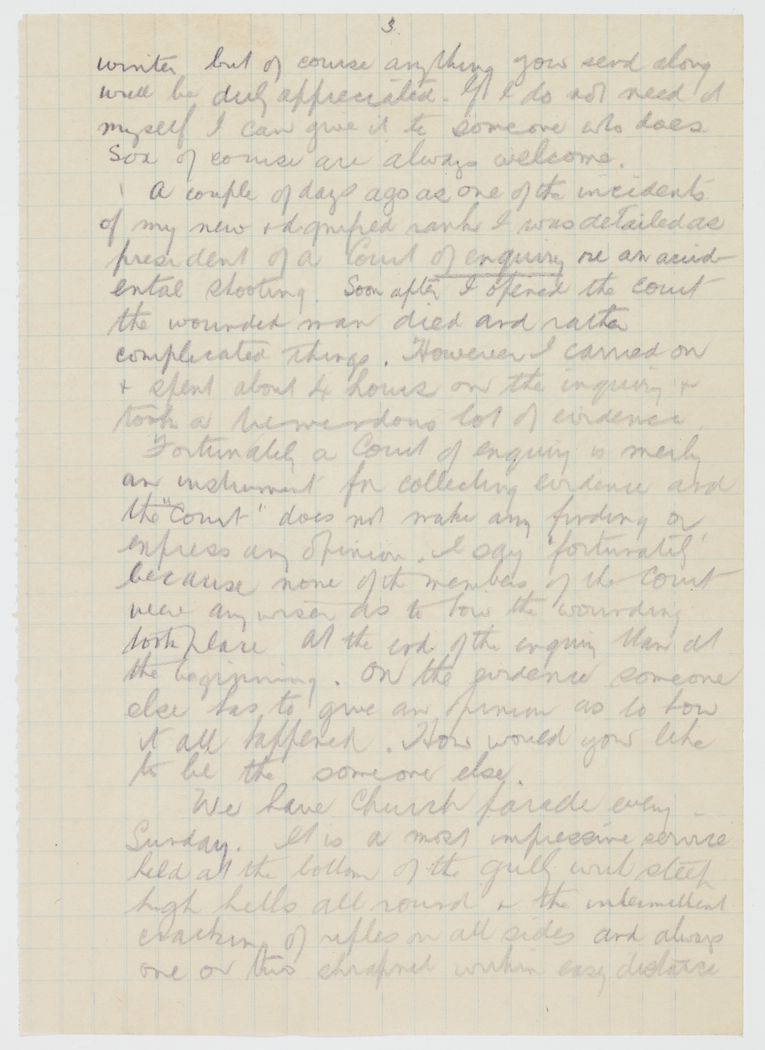 3.
winter but of course anything you send along
will be duly appreciated. If I do not need it
myself I can give it to someone who does
Sox of course are always welcome.
A couple of days ago as one of the incidents
of my new & dignified rank I was detailed as
president of a Court of enquiry re an accid-
ental shooting. Soon after I opened the court
the wounded man died and rather
complicated things. However I carried on
& spent about 4 hours on the inquiry &
took a tremendous lot of evidence.
Fortunately a Court of enquiry is merely
an instrument for collecting evidence and
the "Court" does not make any finding or
express any opinion. I say "fortunately"
because none of the members of the Court
were any wiser as to how the wounding
took place at the end of the enquiry than at
the beginning. On the evidence someone
else has to give an opinion as to how
it all happened. How would you like
to be the someone else.
We have Church parade every
Sunday. It is a most impressive service
held at the bottom of the gully with steep
high hills all round & the intermittent
cracking of rifles on all sides and always
one or two shrapnel within easy distance